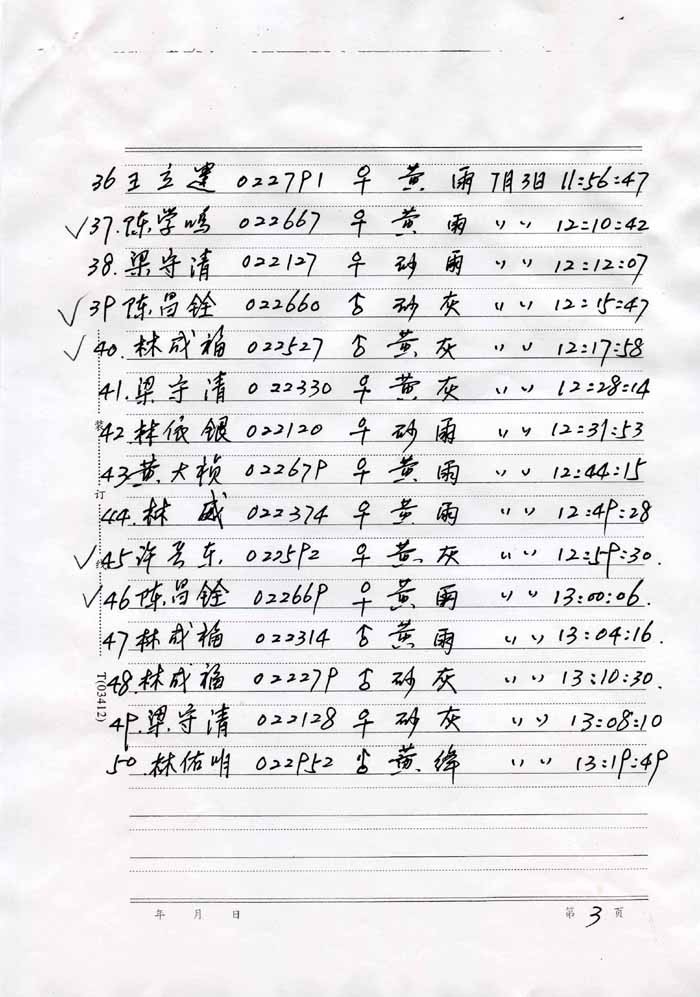 36 王立建 022791 ♀ 黄 雨 7月3日 11:56:47
✓37.陈学鸣 022667 ♀ 黄 雨 〃 〃 12:10:42
38.梁守清 022127 ♀ 砂 雨 〃 〃 12:12:07
✓39 陈昌铨 022660 ♂ 砂 灰 〃 〃 12:15:47
✓40.林成福 022527 ♂ 黄 灰 〃 〃 12:17:58
41.梁守清 022330 ♀ 黄 灰 〃 〃 12:28:14
42.林依银 022120 ♀ 砂 雨 〃 〃 12:31:53
43 黄大桢 022679 ♀ 黄 雨 〃 〃 12:44:15
44.林 威 022374 ♀ 黄 雨 〃 〃 12:49:28
✓45 许 东 022592 ♀ 黄 灰 〃 〃 12:59:30.
✓46 陈昌铨 022669 ♀ 黄 雨 〃 〃 13:00:06.
47 林成福 022314 ♂ 黄 雨 〃 〃 13:04:16.
48.林成福 022279 ♂ 砂 灰 〃 〃 13:10:30.
49.梁守清 022128 ♀ 砂 灰 〃 〃 13:08:10
50.林佑明 022952 ♂ 黄 绛 〃 〃 13:19:49
装 订 线
T(03412)
年 月 日 第 3 页